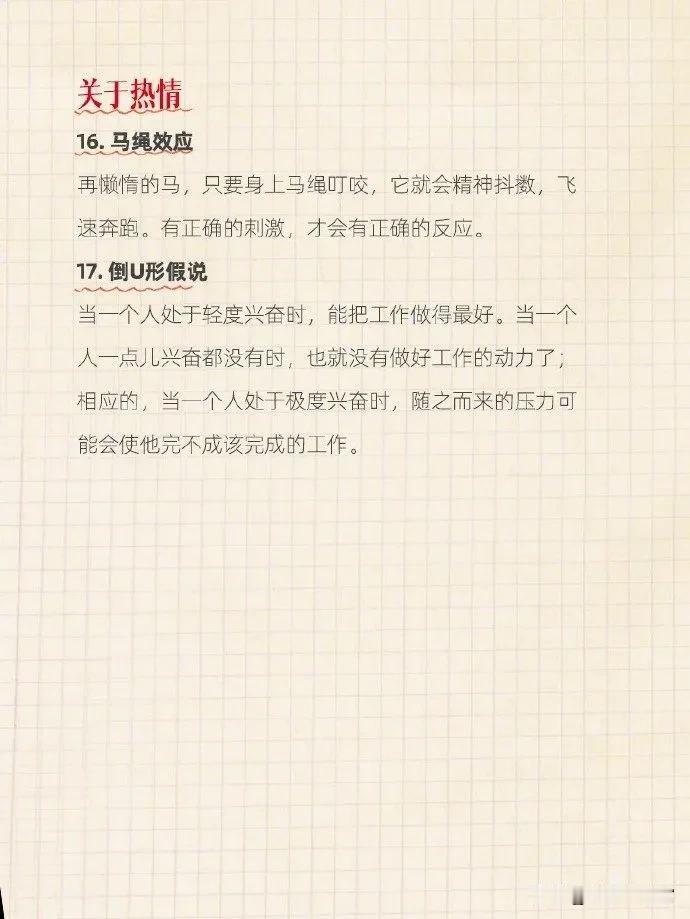 关于热情
16. 马绳效应
再懒惰的马，只要身上马绳叮咬，它就会精神抖擞，飞
速奔跑。有正确的刺激，才会有正确的反应。
17. 倒U形假说
当一个人处于轻度兴奋时，能把工作做得最好。当一个
人一点儿兴奋都没有时，也就没有做好工作的动力了；
相应的，当一个人处于极度兴奋时，随之而来的压力可
能会使他完不成该完成的工作。